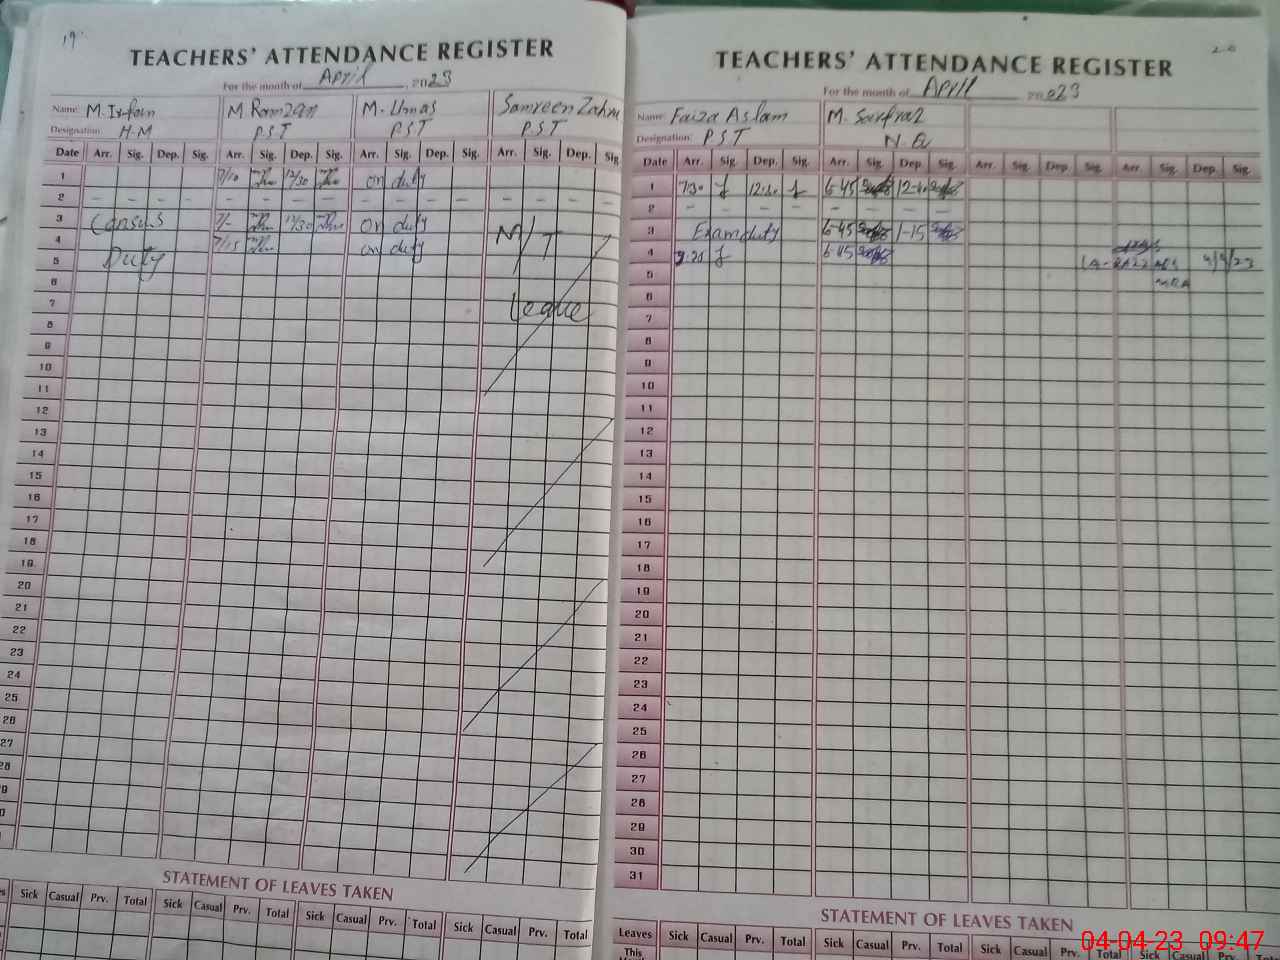 19
TEACHERS' ATTENDANCE REGISTER
For the month of April, 2023
Name: M. Irfan M. Ramzan M. Umas Samreen Zahra
Designation: H.M P.S.T P.S.T P.S.T
Date Arr. Sig. Dep. Sig. Arr. Sig. Dep. Sig. Arr. Sig. Dep. Sig. Arr. Sig. Dep. Sig.
1 7/10 12/30 on duty
2 - - - - - - - - - - - - - - - -
3 Census 7/- 12/30 on duty M/T
4 7/15 on duty
5 Duty
6
7 Leave
8
9
10
11
12
13
14
15
16
17
18
19
20
21
22
23
24
25
26
27
28
STATEMENT OF LEAVES TAKEN
Sick Casual Prv. Total Sick Casual Prv. Total Sick Casual Prv. Total Sick Casual Prv. Total
20
TEACHERS' ATTENDANCE REGISTER
For the month of April 2023
Name: Faiza Aslam M. Sarfraz
Designation: P.S.T N.Q
Date Arr. Sig. Dep. Sig. Arr. Sig. Dep. Sig. Arr. Sig. Dep. Sig. Arr. Sig. Dep. Sig.
1 7:30 12:30 6-45
2 - - - - - - - -
3 Exam duty 6-45 1-15
4 6-45
5 4/4/23
6 MEA
7
8
9
10
11
12
13
14
15
16
17
18
19
20
21
22
23
24
25
26
27
28
29
30
31
STATEMENT OF LEAVES TAKEN
Leaves Sick Casual Prv. Total Sick Casual Prv. Total Sick Casual Prv. Total Sick Casual Prv. Total
This
04-04-23 09:47